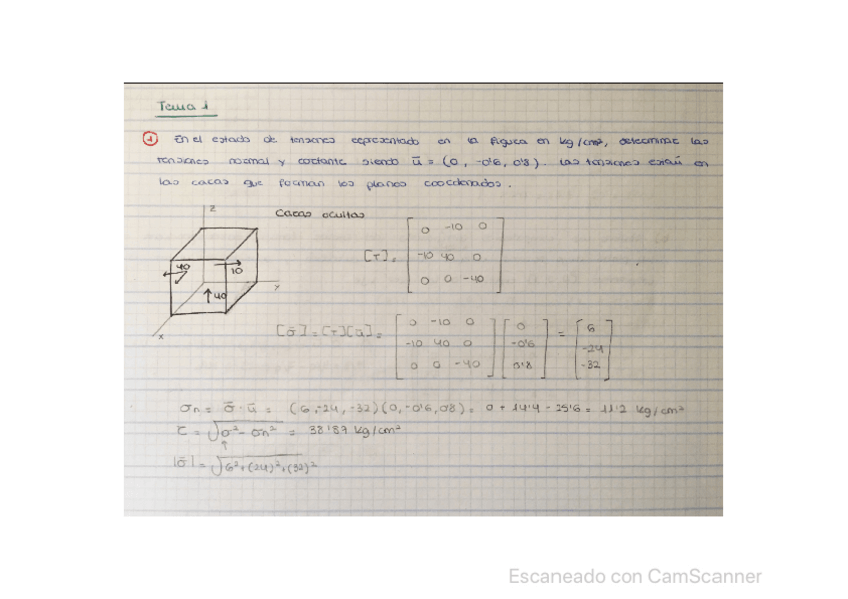 Tema 1
1 En el estado de tensiones representado en la figura en kg/cm², determinar las
tensiones normal y cortante siendo ū = (0, -0'6, 0'8). Las tensiones están en
las caras que forman los planos coordenados.
z
Caras ocultas
[T] =
0 -10 0
-10 40 0
0 0 -40
40
10
40
y
x
[σ̄] = [T][ū] =
0 -10 0
-10 40 0
0 0 -40
0
-0'6
0'8
=
6
-24
-32
σn = σ̄ · ū = (6, -24, -32)(0, -0'6, 0'8) = 0 + 14'4 - 25'6 = 11'2 kg/cm²
τ = √σ² - σn² = 38'87 kg/cm²
|σ̄| = √6² + (24)² + (32)²
Escaneado con CamScanner